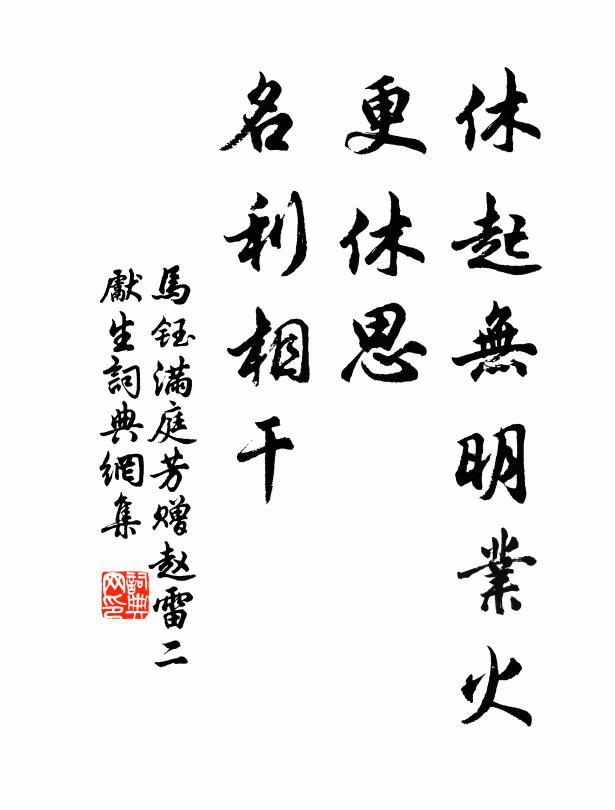 休起無明業火
更休思
名利相干
馬鈺滿庭芳贈赵雷二
獻生詞典網集
詞典网印